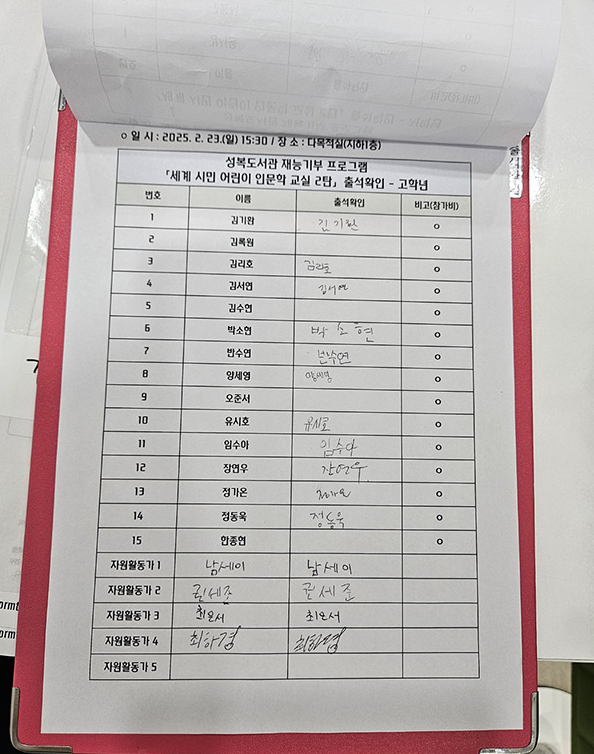 ㅇ 일 시 : 2025. 2. 23.(일) 15:30 / 장 소 : 다목적실(지하1층)
성복도서관 재능기부 프로그램
「세계 시민 어린이 인문학 교실 2탄」 출석확인 - 고학년
번호 이름 출석확인 비고(참가비)
1 김기환 김기환 o
2 김록원 o
3 김리호 김리호 o
4 김서연 김서연 o
5 김수현 o
6 박소현 박소현 o
7 반수연 반수연 o
8 양세영 양세영 o
9 오준서 o
10 유시호 유시호 o
11 임수아 임수아 o
12 장연우 장연우 o
13 정가온 정가온 o
14 정동욱 정동욱 o
15 한종현 o
자원활동가 1 남세이 남세이
자원활동가 2 권세준 권세준
자원활동가 3 최은서 최은서
자원활동가 4 최하경 최하경
자원활동가 5